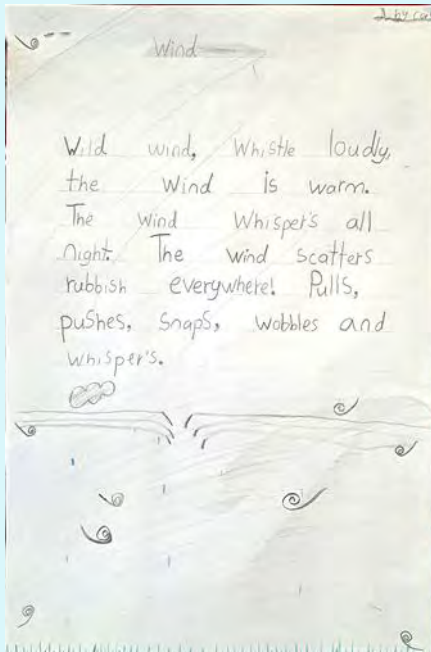 by
Wind
Wild wind, Whistle loudly,
the Wind is warm.
The wind Whisper's all
night. The wind scatters
rubbish everywhere! Pulls,
pushes, snaps, wobbles and
whisper's.